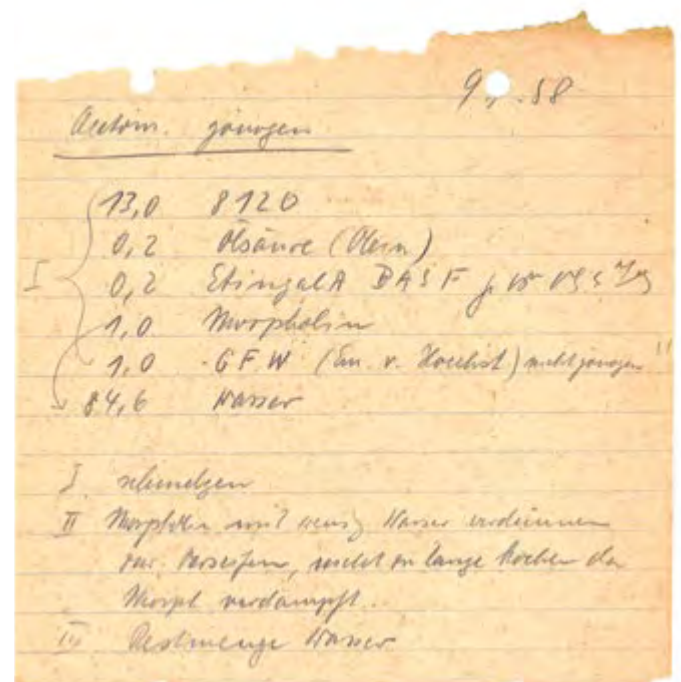 9. .58
13,0 8120
0,2 Ölsäure (Olein)
0,2 BASF
1,0 Morpholin
1,0 GFW (Em. v. Hoechst) nicht !!
84,6 Wasser
I schmelzen
II Morpholin mit wenig Wasser verdünnen
zur Verseifen, nicht zu lange kochen da
Morph verdampft.
III Restmenge Wasser